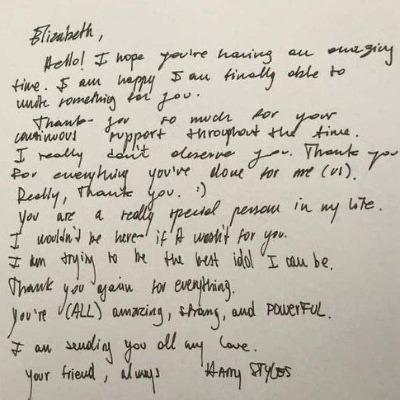 Elizabeth,
Hello! I hope you're having an amazing
time. I am happy I am finally able to
write something for you.
Thank you so much for your
continuous support throughout the time.
I really don't deserve you. Thank you
For everything you've done for me (us).
Really, thank you. :)
You are a really special person in my life.
I wouldn't be here if it wasn't for you.
I am trying to be the best idol I can be.
Thank you again for everything.
You're (ALL) amazing, strong, and POWERFUL.
I am sending you all my love.
your friend, always Harry STYLES